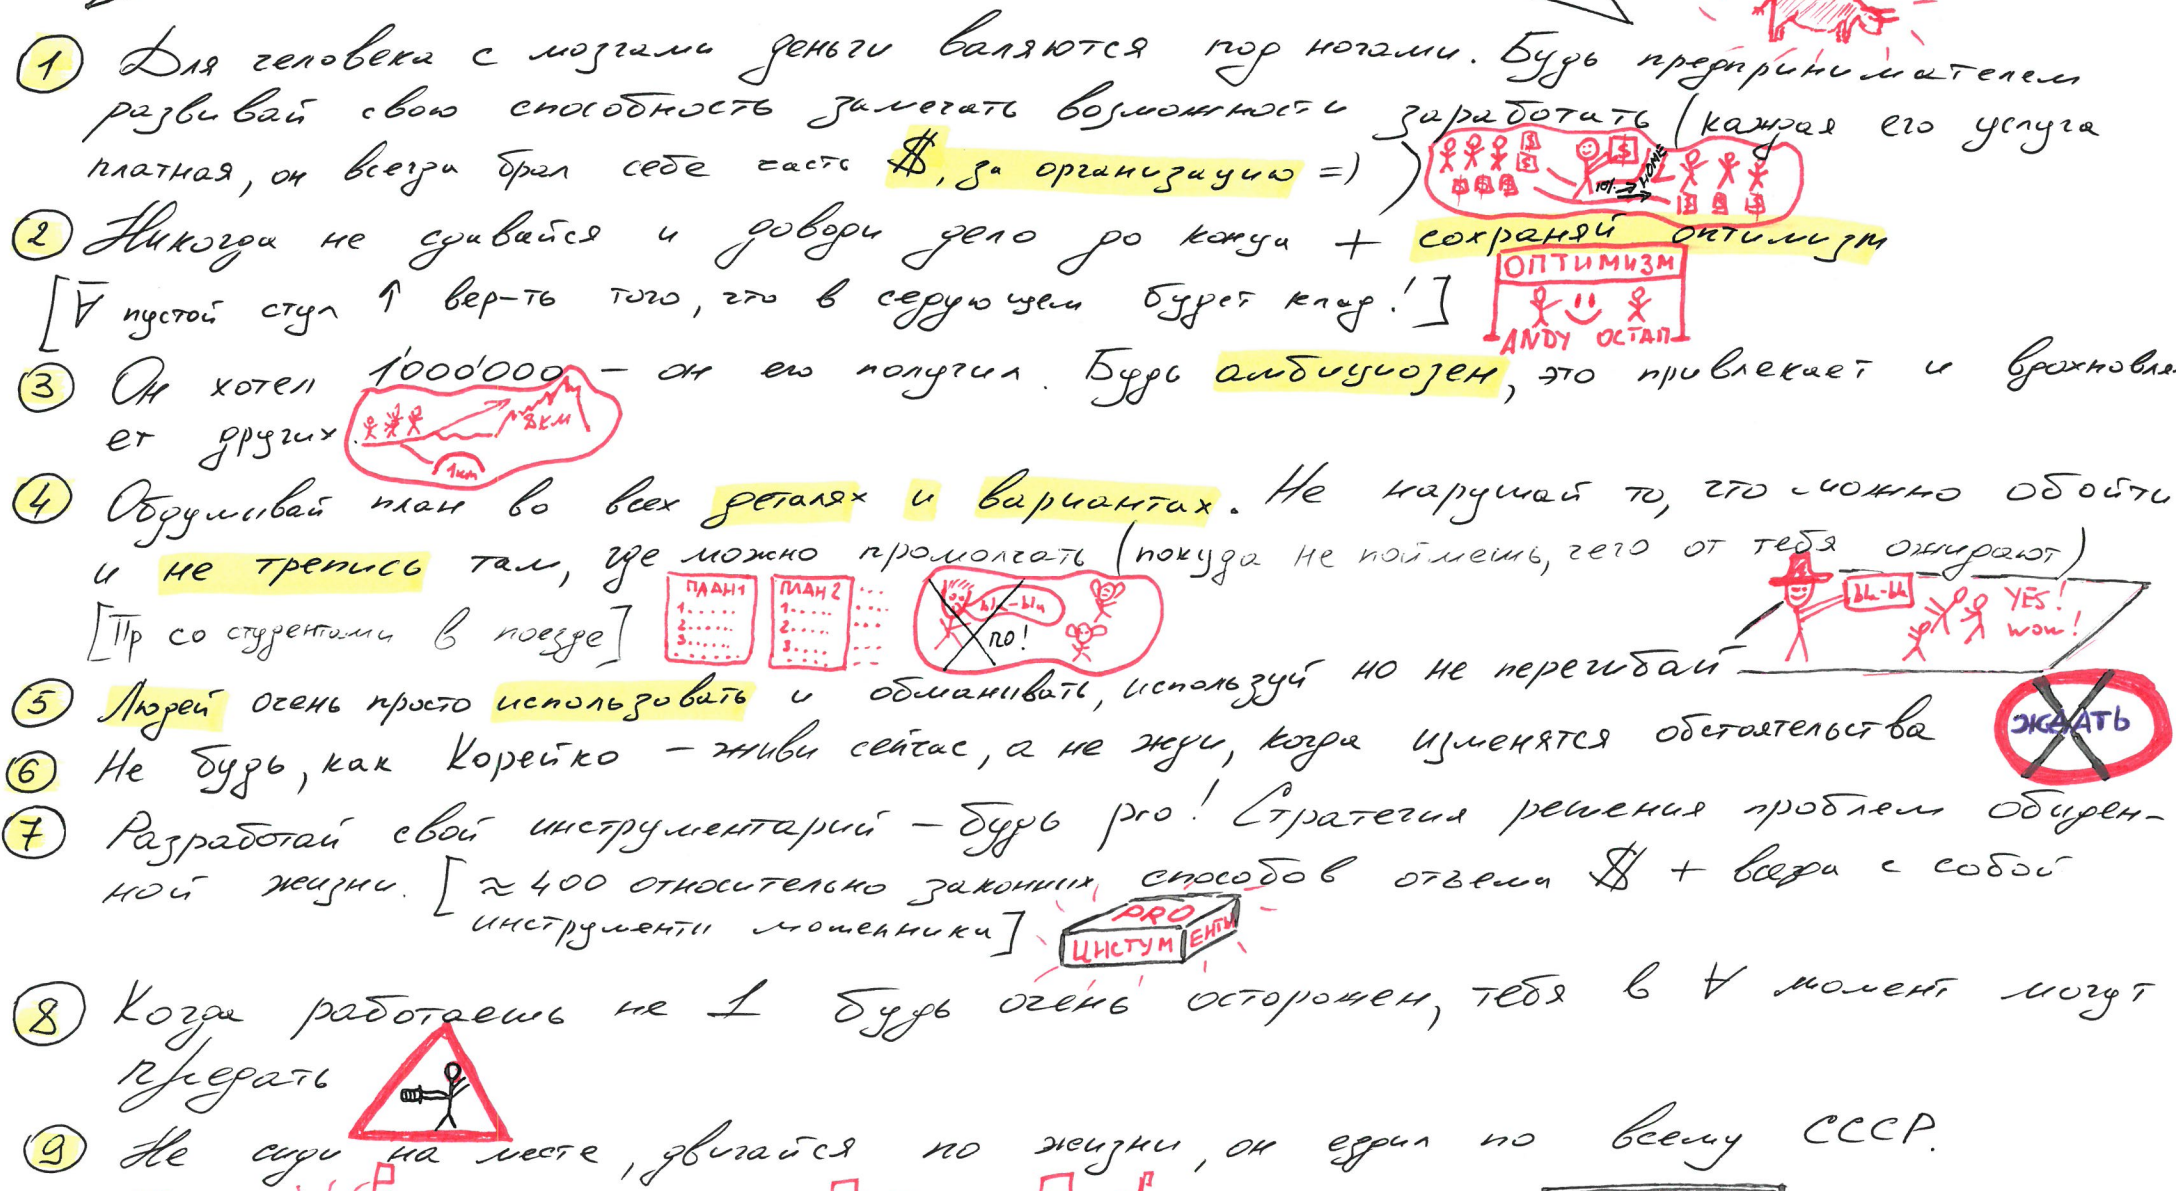 1 Для человека с мозгами деньги валяются под ногами. Будь предпринимателем
развивай свою способность замечать возможности заработать (каждая его услуга
платная, он всегда брал себе часть $, за организацию =) )
$ $ $ 10% HOME
2 Никогда не сдавайся и доводи дело до конца + сохраняй оптимизм
ОПТИМИЗМ
[∀ пустой стул ↑ вер-ть того, что в седующем будет клад!]
ANDY ОСТАП
3 Он хотел 1'000'000 – он его получил. Будь амбициозен, это привлекает и вдохновля-
ет других.
8км
1км
4 Обдумывай план во всех деталях и вариантах. Не нарушай то, что можно обойти
и не трепись там, где можно промолчать (покуда не поймешь, чего от тебя ожидают)
[Пр со студентами в поезде]
ПЛАН 1
1......
2......
3......
ПЛАН 2
1.....
2.....
3.....
bla-bla
no!
bla-bla
YES!
wow!
5 Людей очень просто использовать и обманывать, используй но не перегибай
6 Не будь, как Корейко – живи сейчас, а не жди, когда изменятся обстоятельства
ЖДАТЬ
7 Разработай свой инструментарий – будь pro! Стратегия решения проблем обиден-
ной жизни. [≈ 400 относительно законных способов отъема $ + всегда с собой
инструменты мошенника]
PRO
ИНСТУМ ЕНТЫ
8 Когда работаешь не 1 будь очень осторожен, тебя в ∀ момент могут
предать
9 Не сиди на месте, двигайся по жизни, он ездил по всему СССР.